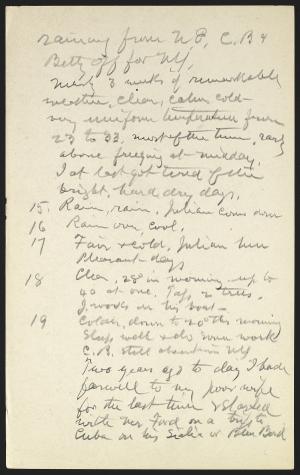 raining from N E, C. B &
Betty off for N Y,
Nearly 3 weeks of remarkable
weather, clear, calm cold –
very uniform temperature from
23 to 33, most of the time, rarely
above freezing at midday,
I at last got tired of the
bright, hard dry days.
15. Rain, rain, Julian comes down
16 Rain over, cool.
17 Fair & cold, Julian here
Pleasant days
18 Clear, 28 in morning – up to
40 at one. Tap 2 trees.
J. works on his boat –
19 Colder, down to 20 this morning
Sleep well & do some work
C. B. still absent in N Y
Two years ago to day I bade
farewell to my poor wife
for the last time & started
with Ford on a trip to
Cuba on his